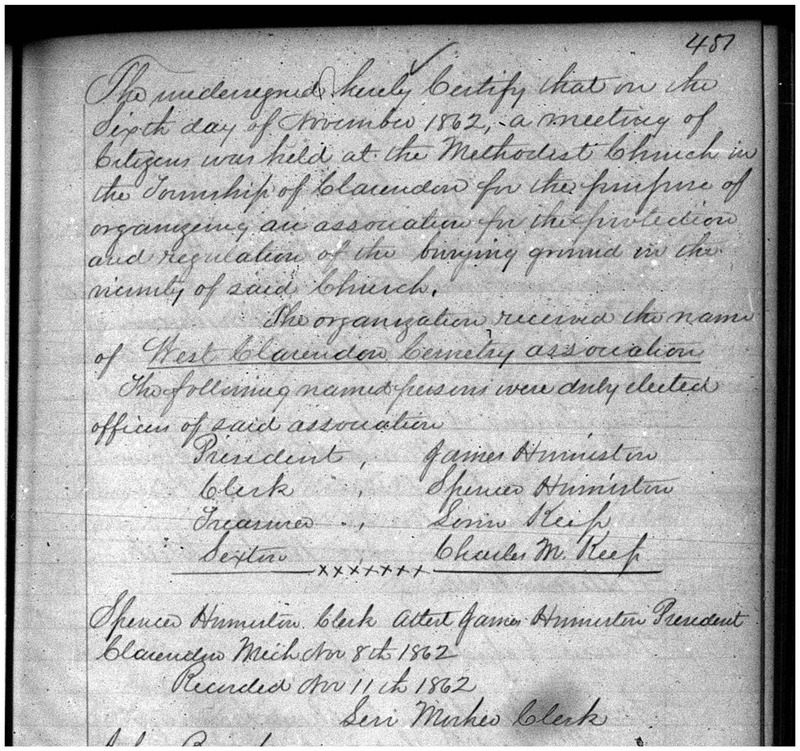 487
The undersigned hereby Certify that on the
Sixth day of November 1862, a meeting of
Citizens was held at the Methodist Church in
the Township of Clarendon for the purpose of
organizing an association for the protection
and regulation of the burying ground in the
vicinity of said Church.
The organization received the name
of West Clarendon Cemetry association
The following named persons were duly elected
officers of said association
President , James Humiston
Clerk , Spencer Humiston
Treasurer , Keep
Sexton Charles M. Keep
xxxxxxx
Spencer Humiston Clerk Attest James Humiston President
Clarendon Mich Nov 8th 1862
Recorded Nov 11th 1862
Clerk